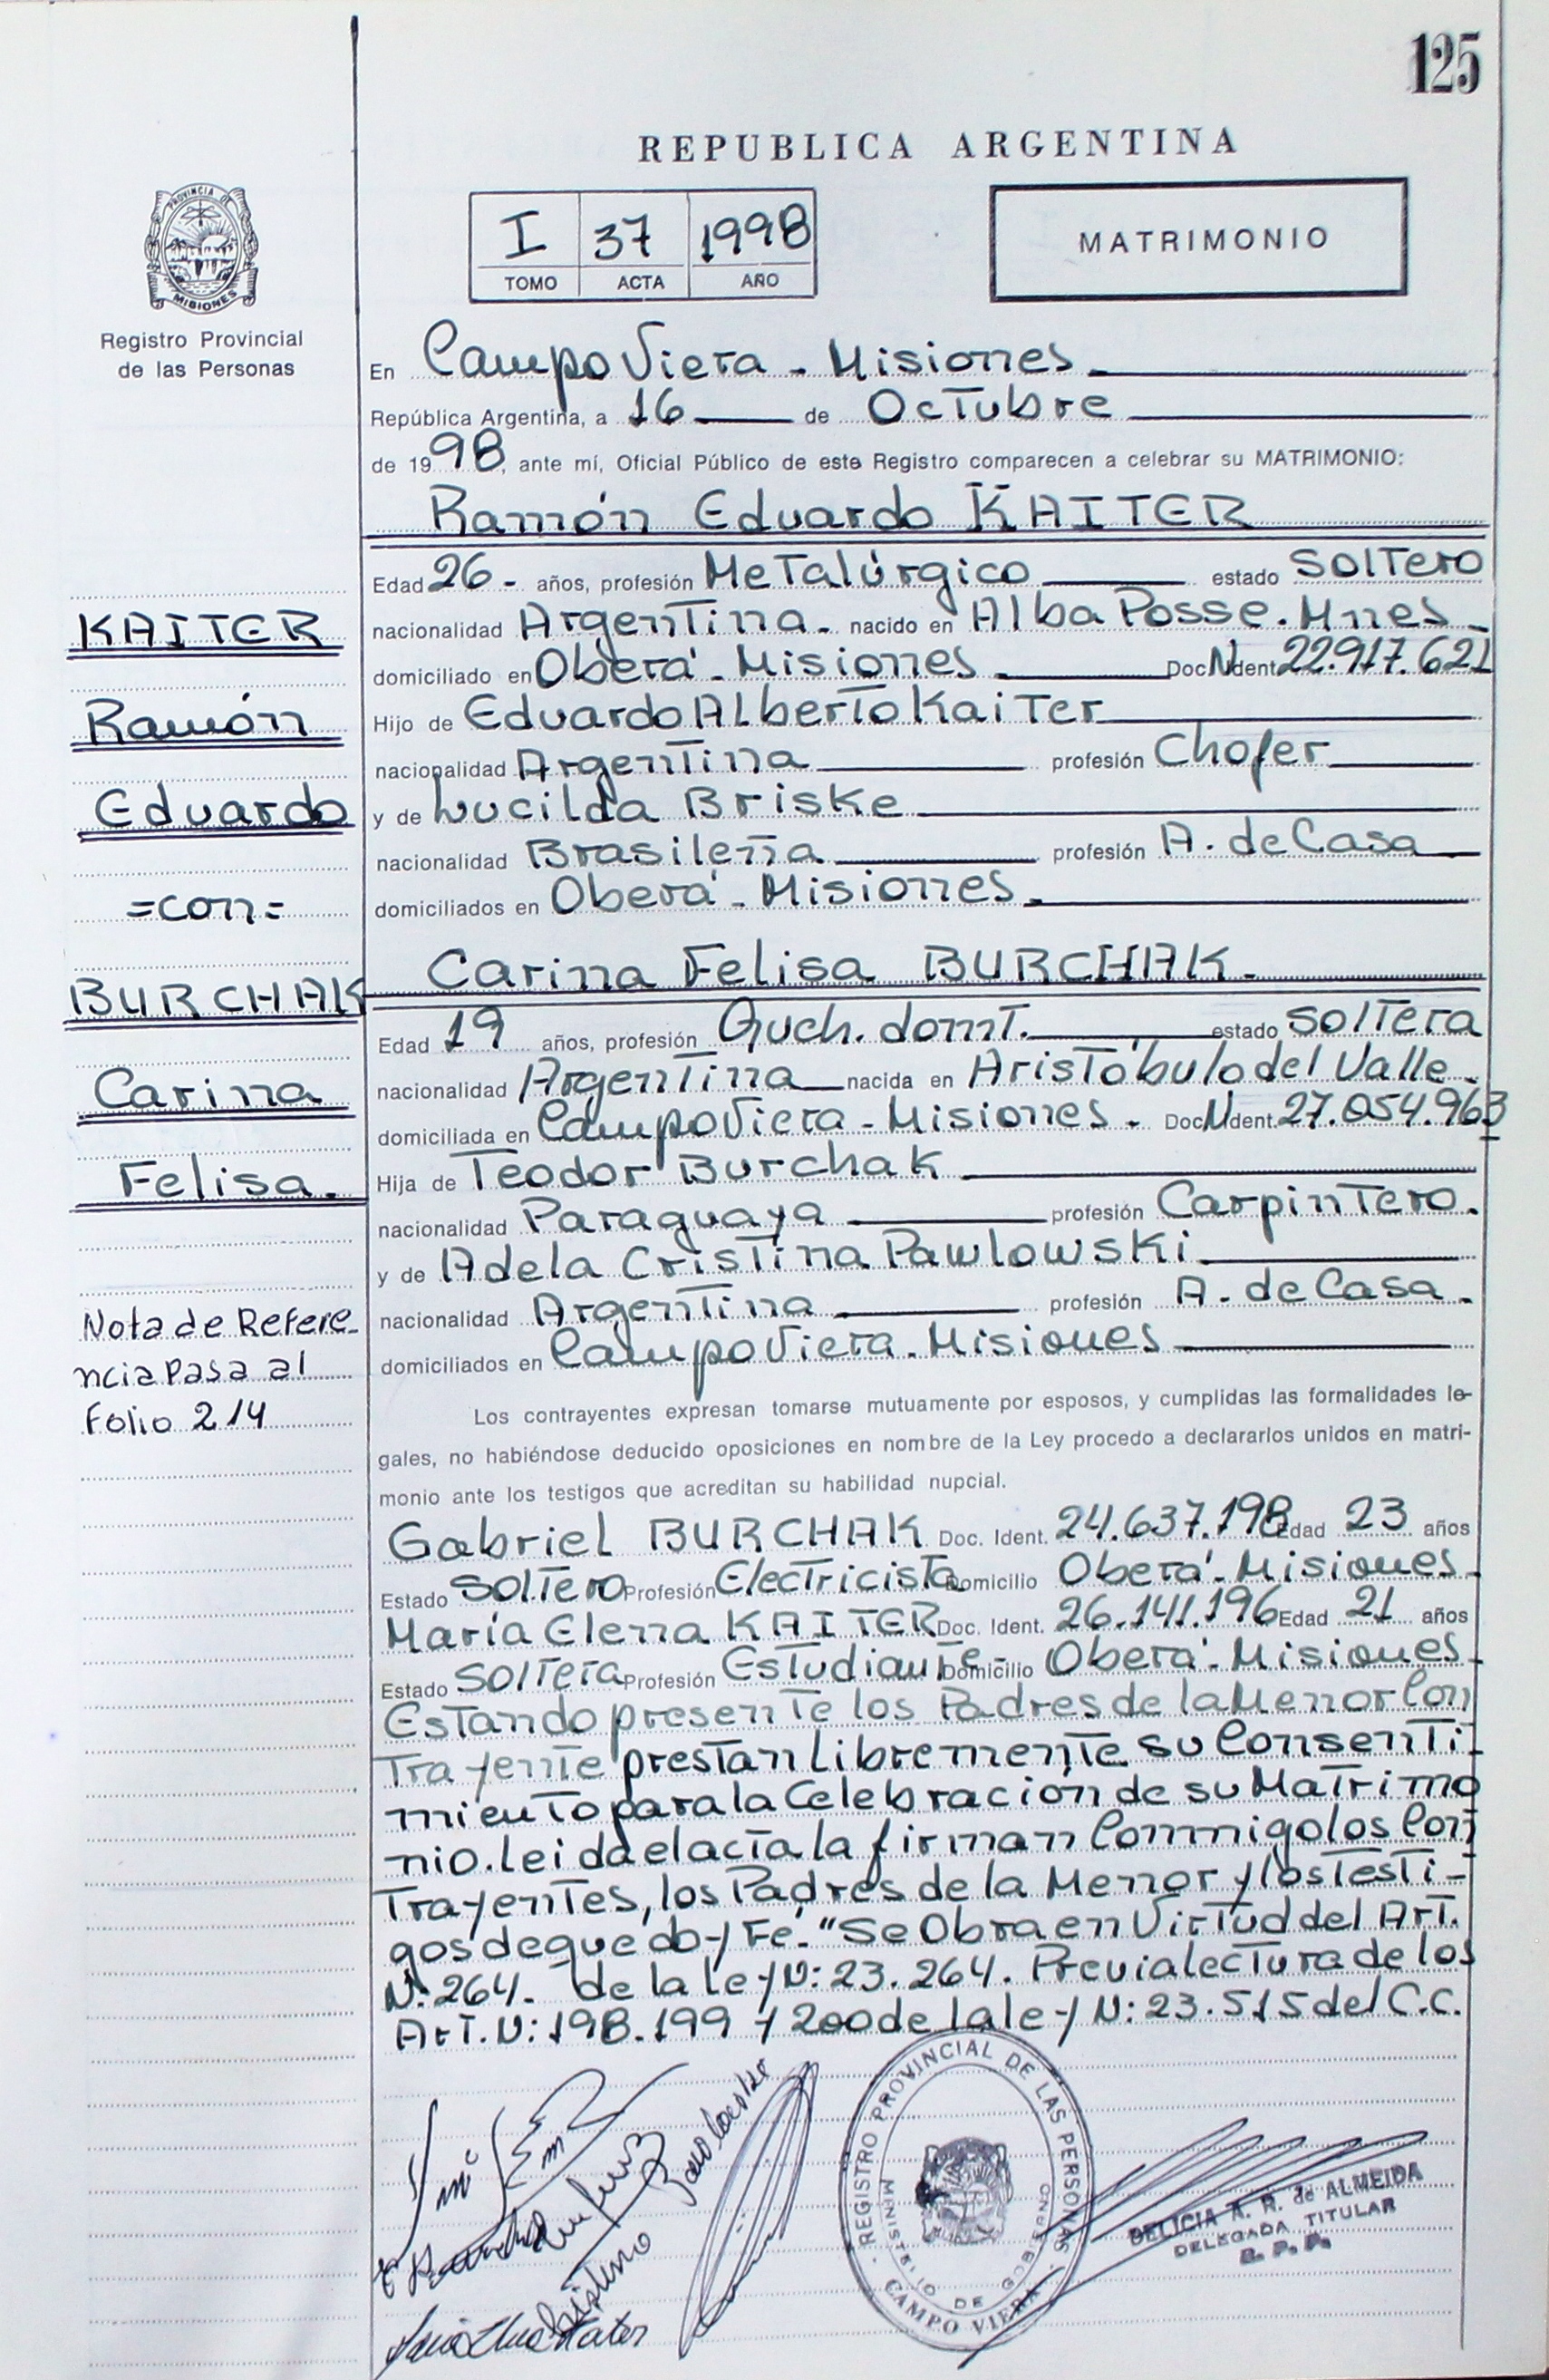 125
REPUBLICA ARGENTINA
I 37 1998
TOMO ACTA AÑO
MATRIMONIO
PROVINCIA
MISIONES
Registro Provincial
de las Personas
En Campo Viera - Misiones
República Argentina, a 16 de Octubre
de 1998, ante mí, Oficial Público de este Registro comparecen a celebrar su MATRIMONIO:
Ramón Eduardo KAITER
Edad 26- años, profesión Metalúrgico estado Soltero
nacionalidad Argentina - nacido en Alba Posse. Mnes -
domiciliado en Oberá - Misiones - Doc N Ident. 22.917.621
Hijo de Eduardo Alberto Kaiter
nacionalidad Argentina profesión Chofer
y de Lucilda Briske
nacionalidad Brasileña profesión A. de Casa
domiciliados en Oberá - Misiones -
Carina Felisa BURCHAK -
Edad 19 años, profesión Quch. domt. estado soltera
nacionalidad Argentina nacida en Aristóbulo del Valle -
domiciliada en Campo Viera - Misiones - Doc N Ident. 27.054.963
Hija de Teodor Burchak
nacionalidad Paraguaya profesión Carpintero.
y de Adela Cristina Pawlowski
nacionalidad Argentina profesión A. de Casa -
domiciliados en Campo Viera - Misiones
KAITER
Ramón
Eduardo
=con=
BURCHAK
Carina
Felisa.
Nota de Refere-
ncia Pasa al
Folio 214
Los contrayentes expresan tomarse mutuamente por esposos, y cumplidas las formalidades le-
gales, no habiéndose deducido oposiciones en nombre de la Ley procedo a declararlos unidos en matri-
monio ante los testigos que acreditan su habilidad nupcial.
Gabriel BURCHAK Doc. Ident. 24.637.198 Edad 23 años
Estado Soltero Profesión Electricista Domicilio Oberá - Misiones -
María Elena KAITER Doc. Ident. 26.141.196 Edad 21 años
Estado Soltera Profesión Estudiante - Domicilio Oberá - Misiones -
Estando presente los Padres de la Menor Con
Trayente prestan Libremente su Consenti-
miento para la Celebración de su Matrimo
nio. Leida el acta la firman Conmigo los Con
Trayentes, los Padres de la Menor y los Testi-
gos de que doy Fé. "Se Obra en Virtud del Art.
N: 264. de la ley N: 23.264. Previa lectura de los
Art. N: 198.199 y 200 de la ley N: 23.515 del C.C.
REGISTRO PROVINCIAL DE LAS PERSONAS
MINISTERIO DE GOBIERNO
CAMPO VIERA
DELICIA A. R. de ALMEIDA
DELEGADA TITULAR
R. P. P.